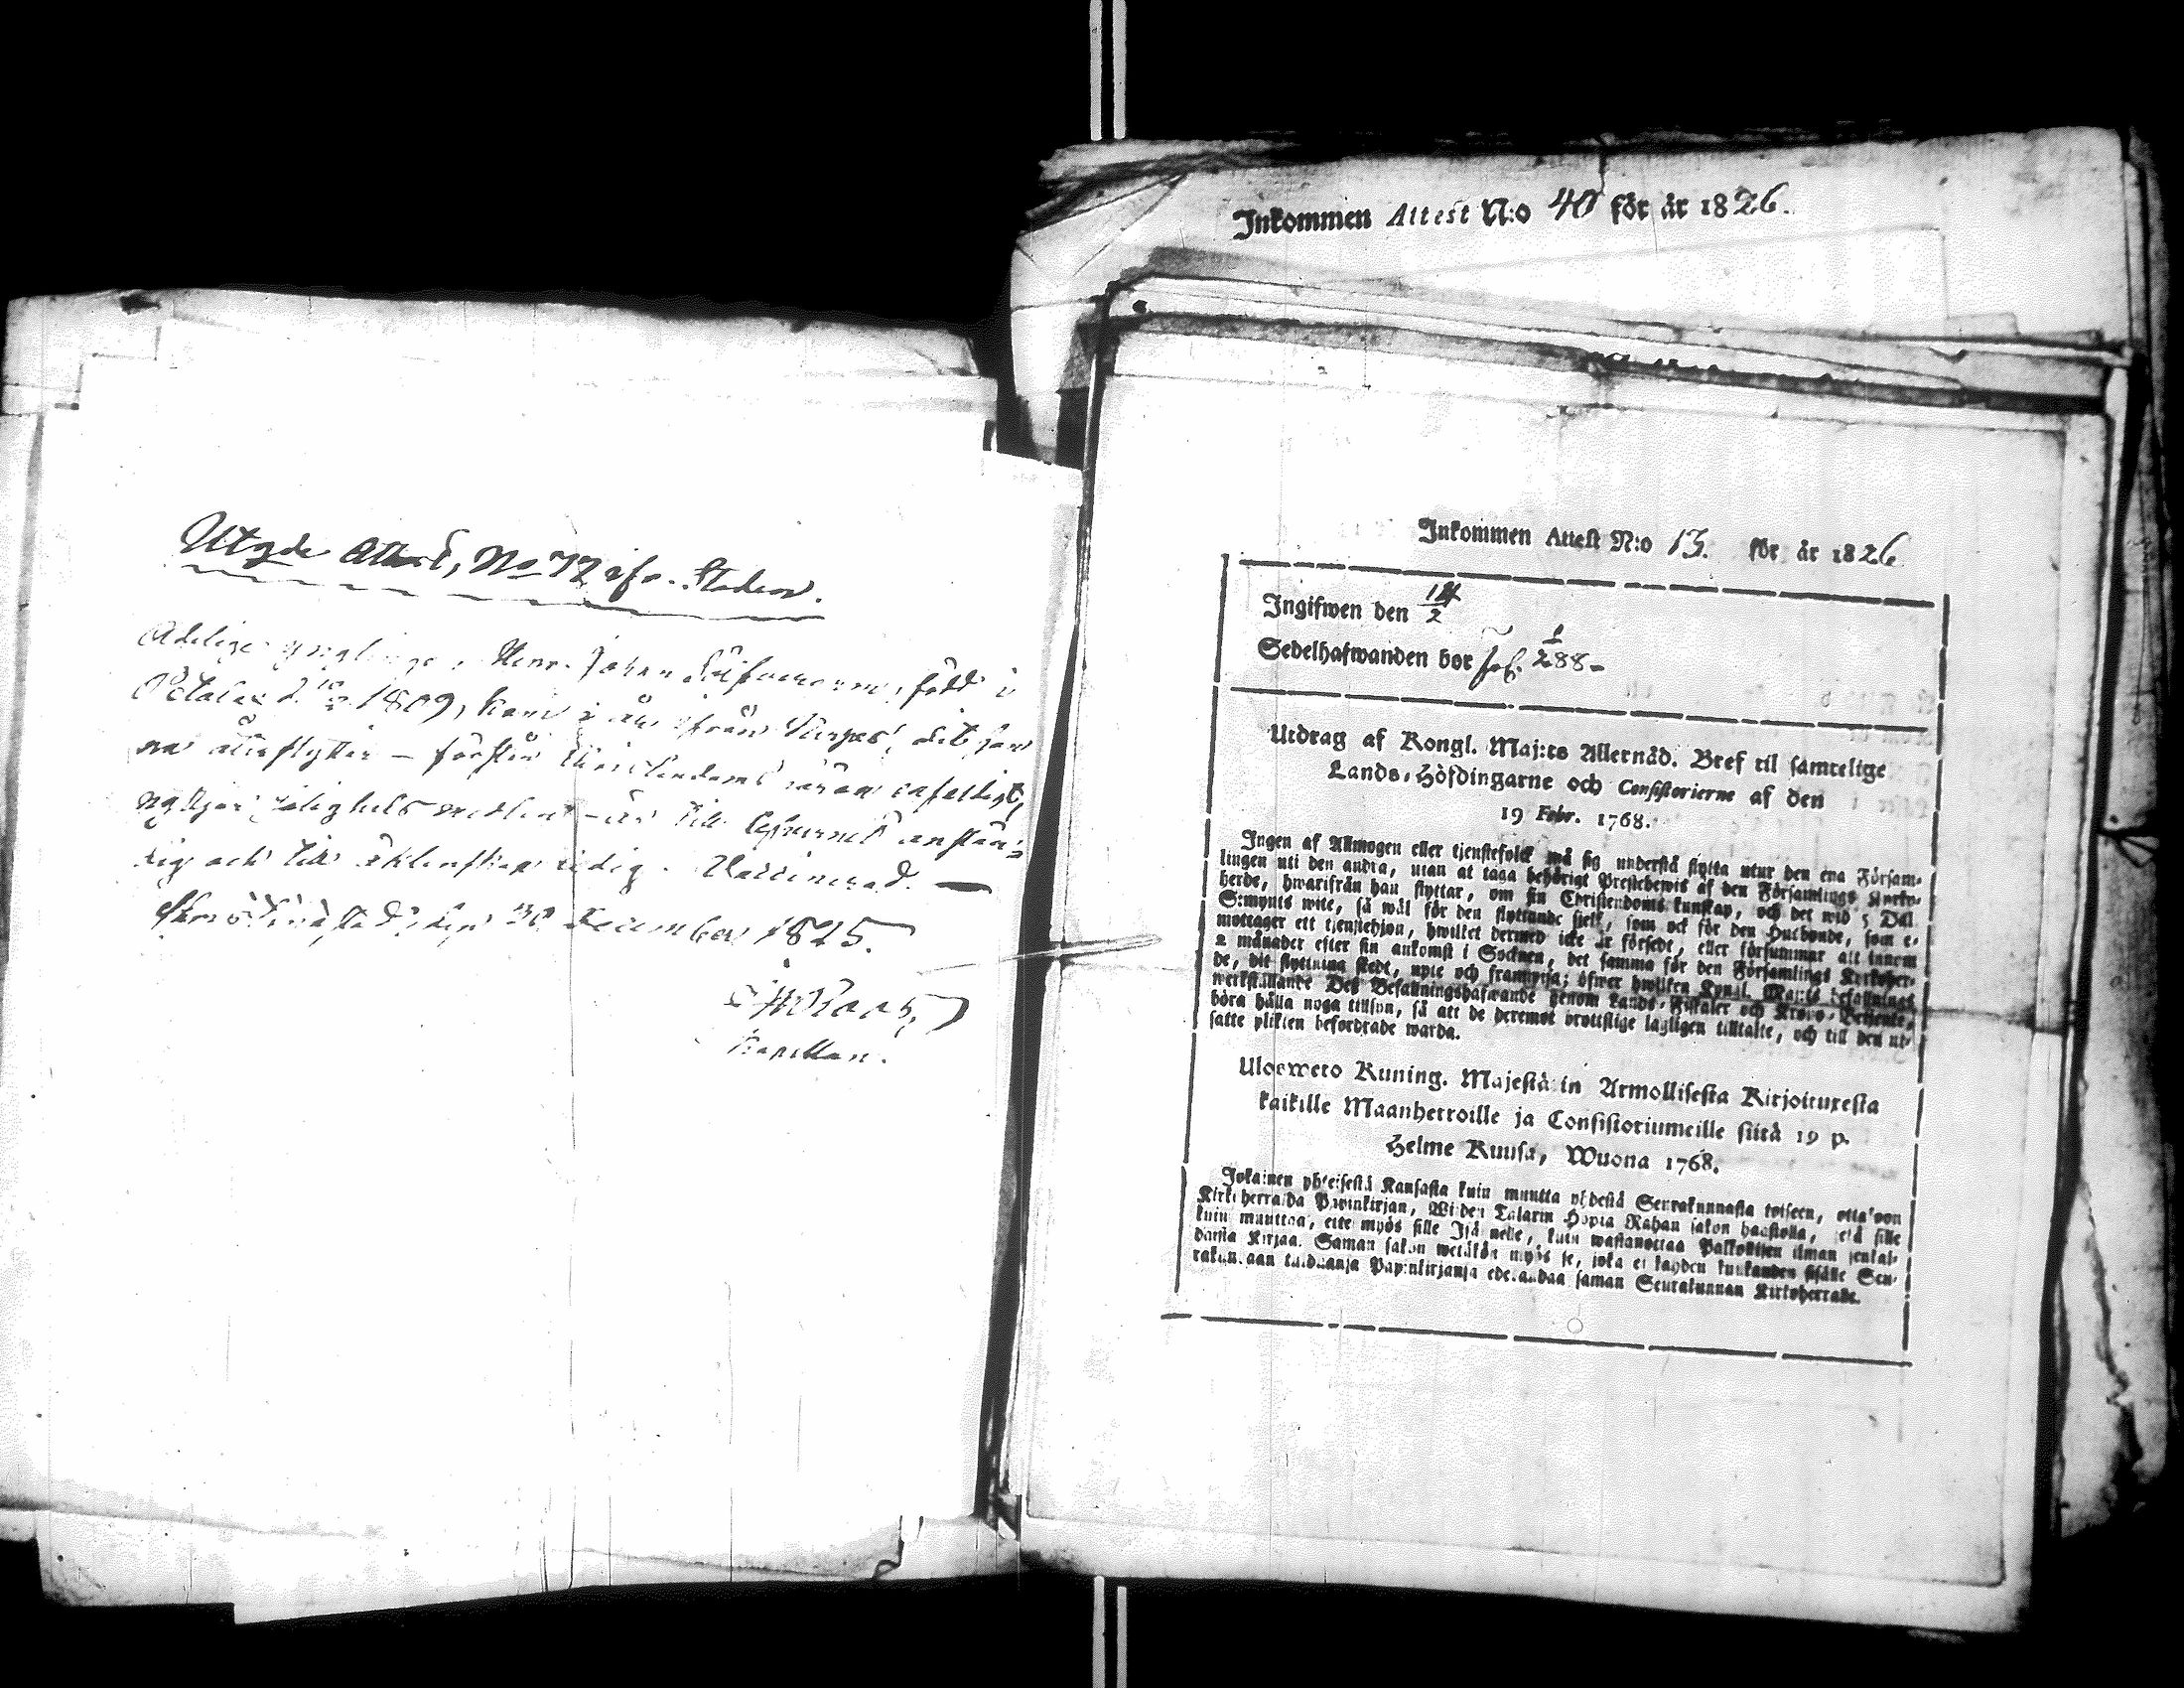 Utgde Attest, No 72 ifr. Staden.
Adelige ynglinge, Henr. Johan född i
d. 1809, kom i år ifrån Nerpes, dit han
nu återflyttar – förstår Christendoms läran enfaldigt,
nyttjar salighets medlen – är till lefvernet anstän-
dig och till äktenskap ledig. Vaccinerad. —
den 30 December 1825.
Kapellan.
Inkommen Attest N:o 40 för år 1826.
Inkommen Attest N:o 13. för år 1826
Ingifwen den 14/2
Sedelhafwanden bor 288-
Utdrag af Kongl. Maj:ts Allernåd. Bref til samtelige
Lands-Höfdingarne och Consistorierne af den
19 Febr. 1768.
Ingen af Allmogen eller tjenstefolck må sig understå flytta utur den ena Försam-
lingen uti den andra, utan at taga behörigt Prestebewis af den Församlings Kyrko-
herde, hwarifrån han flyttar, om sin Christendoms kunskap, och det wid 5 Dal.
S:mynts wite, så wäl för den flyttande sjelf, som ock för den Husbonde, som e-
mottager ett tjenstehjon, hwilket dermed icke är försedt, eller försummar att innom
2 månader efter sin ankomst i Socknen, det samma för den Församlings Kyrkoher-
de, dit flyttning skedt, upte och framwisa; öfwer hwilken Kongl. Maj:ts befallnings
werkställande Des Befallningshafwande genom Lands-Fiskaler och Krono-Betjente,
böra hålla noga tillsyn, så att de deremot brottslige lagligen tilltalte, och till den ut-
satte plikten befordrade warda.
Uloswero Kuning. Majestä:in Armollisesta Kirjoituxesta
kaikille Maanherroille ja Consistoriumeille siitä 19 p.
Helme Kuusa, Wuona 1768.
Jokainen yhteisestä Kansasta kuin muutta yhdestä Seurakunnasta toiseen, ottakoon
Kirkkoherralda Papinkirjan, Wiiden Talarin Hopia Rahan sakon haastolla, sekä sille
kuin muuttaa, että myös sille Isännelle, kuin wastanottaa Palkollisen ilman senkal-
daista Kirjaa. Saman sakon wetäkön myös se, joka ei kahden kuukauden sisälle Seu-
rakundaan tulduansa Papinkirjansa edesandaa saman Seurakunnan Kirkkoherralle.